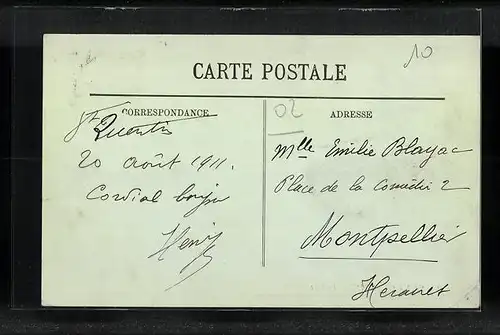 10
CARTE POSTALE
CORRESPONDANCE
St Quentin
20 août 1911.
Cordial bonjour
Henri
02
ADRESSE
Mlle Emilie Blayac
Place de la Comédie 2
Montpellier
Herault